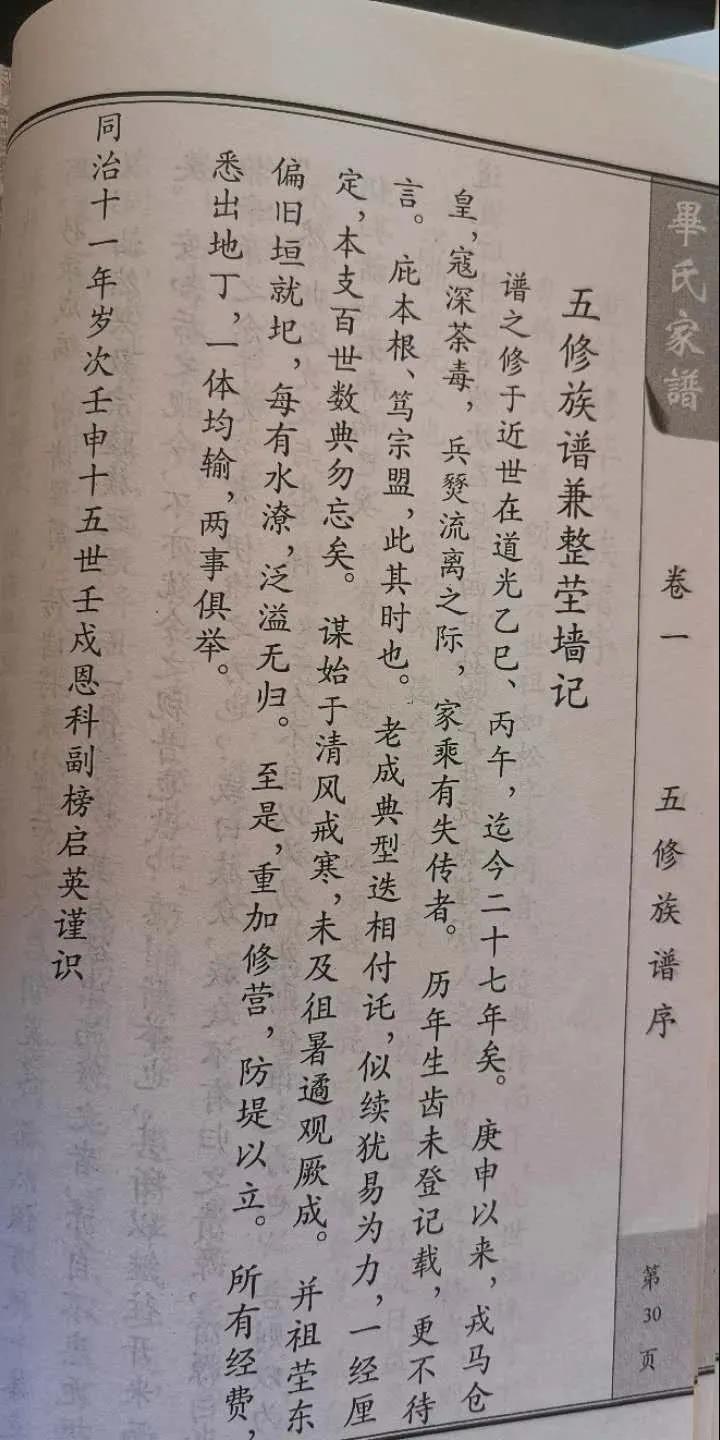 畢氏家譜
卷一
五修族谱序
第30页
五修族谱兼整茔墙记
谱之修于近世在道光乙巳、丙午，迄今二十七年矣。庚申以来，戎马仓
皇，寇深荼毒，兵燹流离之际，家乘有失传者。历年生齿未登记载，更不待
言。庇本根、笃宗盟，此其时也。老成典型迭相付讬，似续犹易为力，一经厘
定，本支百世数典勿忘矣。谋始于清风戒寒，未及徂暑遹观厥成。并祖茔东
偏旧垣就圮，每有水潦，泛溢无归。至是，重加修营，防堤以立。所有经费，
悉出地丁，一体均输，两事俱举。
同治十一年岁次壬申十五世壬戍恩科副榜启英谨识